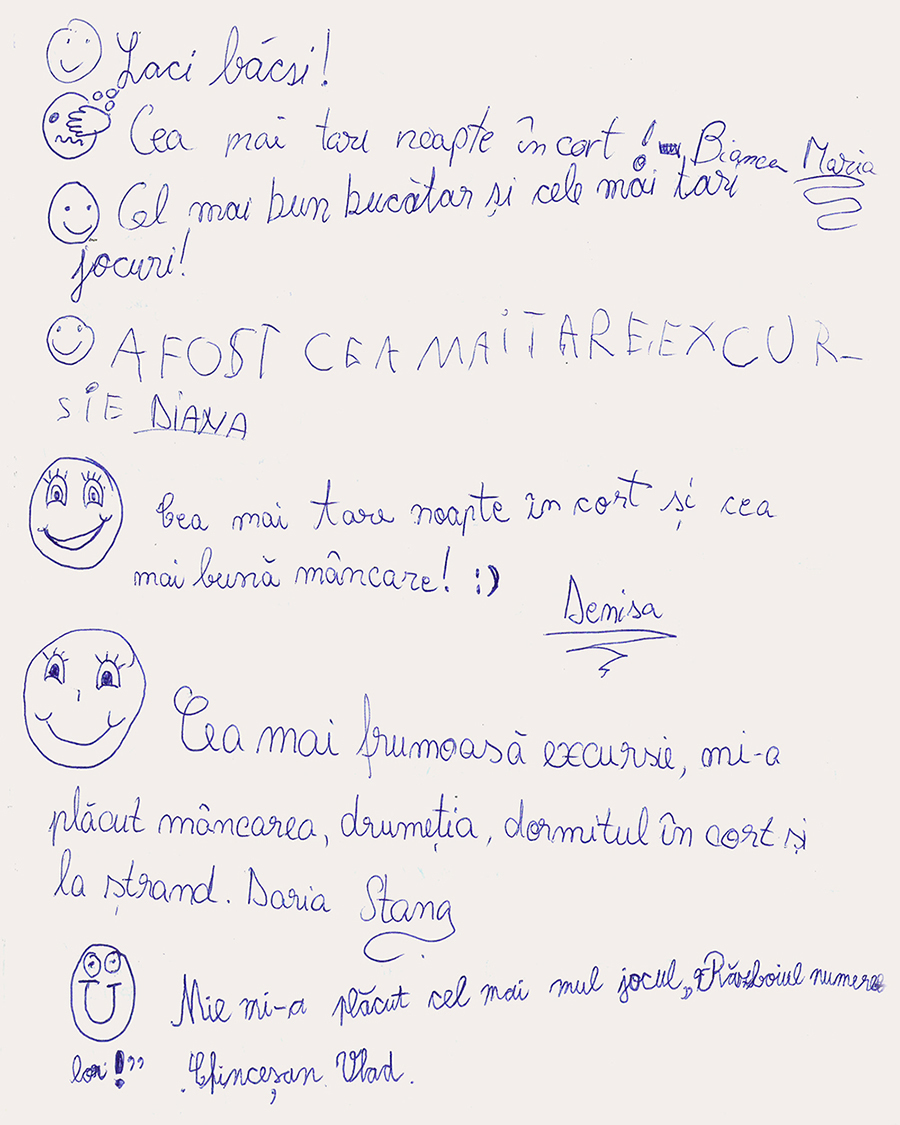 Laci băcsi!
Cea mai tari noapte în cort! Bianca Maria
Cel mai bun bucătar și cele mai tari
jocuri!
A FOST CEA MAI TARE EXCUR-
SIE DIANA
Cea mai tare noapte în cort și cea
mai bună mâncare! :)
Denisa
Cea mai frumoasă excursie, mi-a
plăcut mâncarea, drumeția, dormitul în cort și
la ștrand. Daria Stang
Mie mi-a plăcut cel mai mul jocul „Războiul numere
lor!”  Vlad.